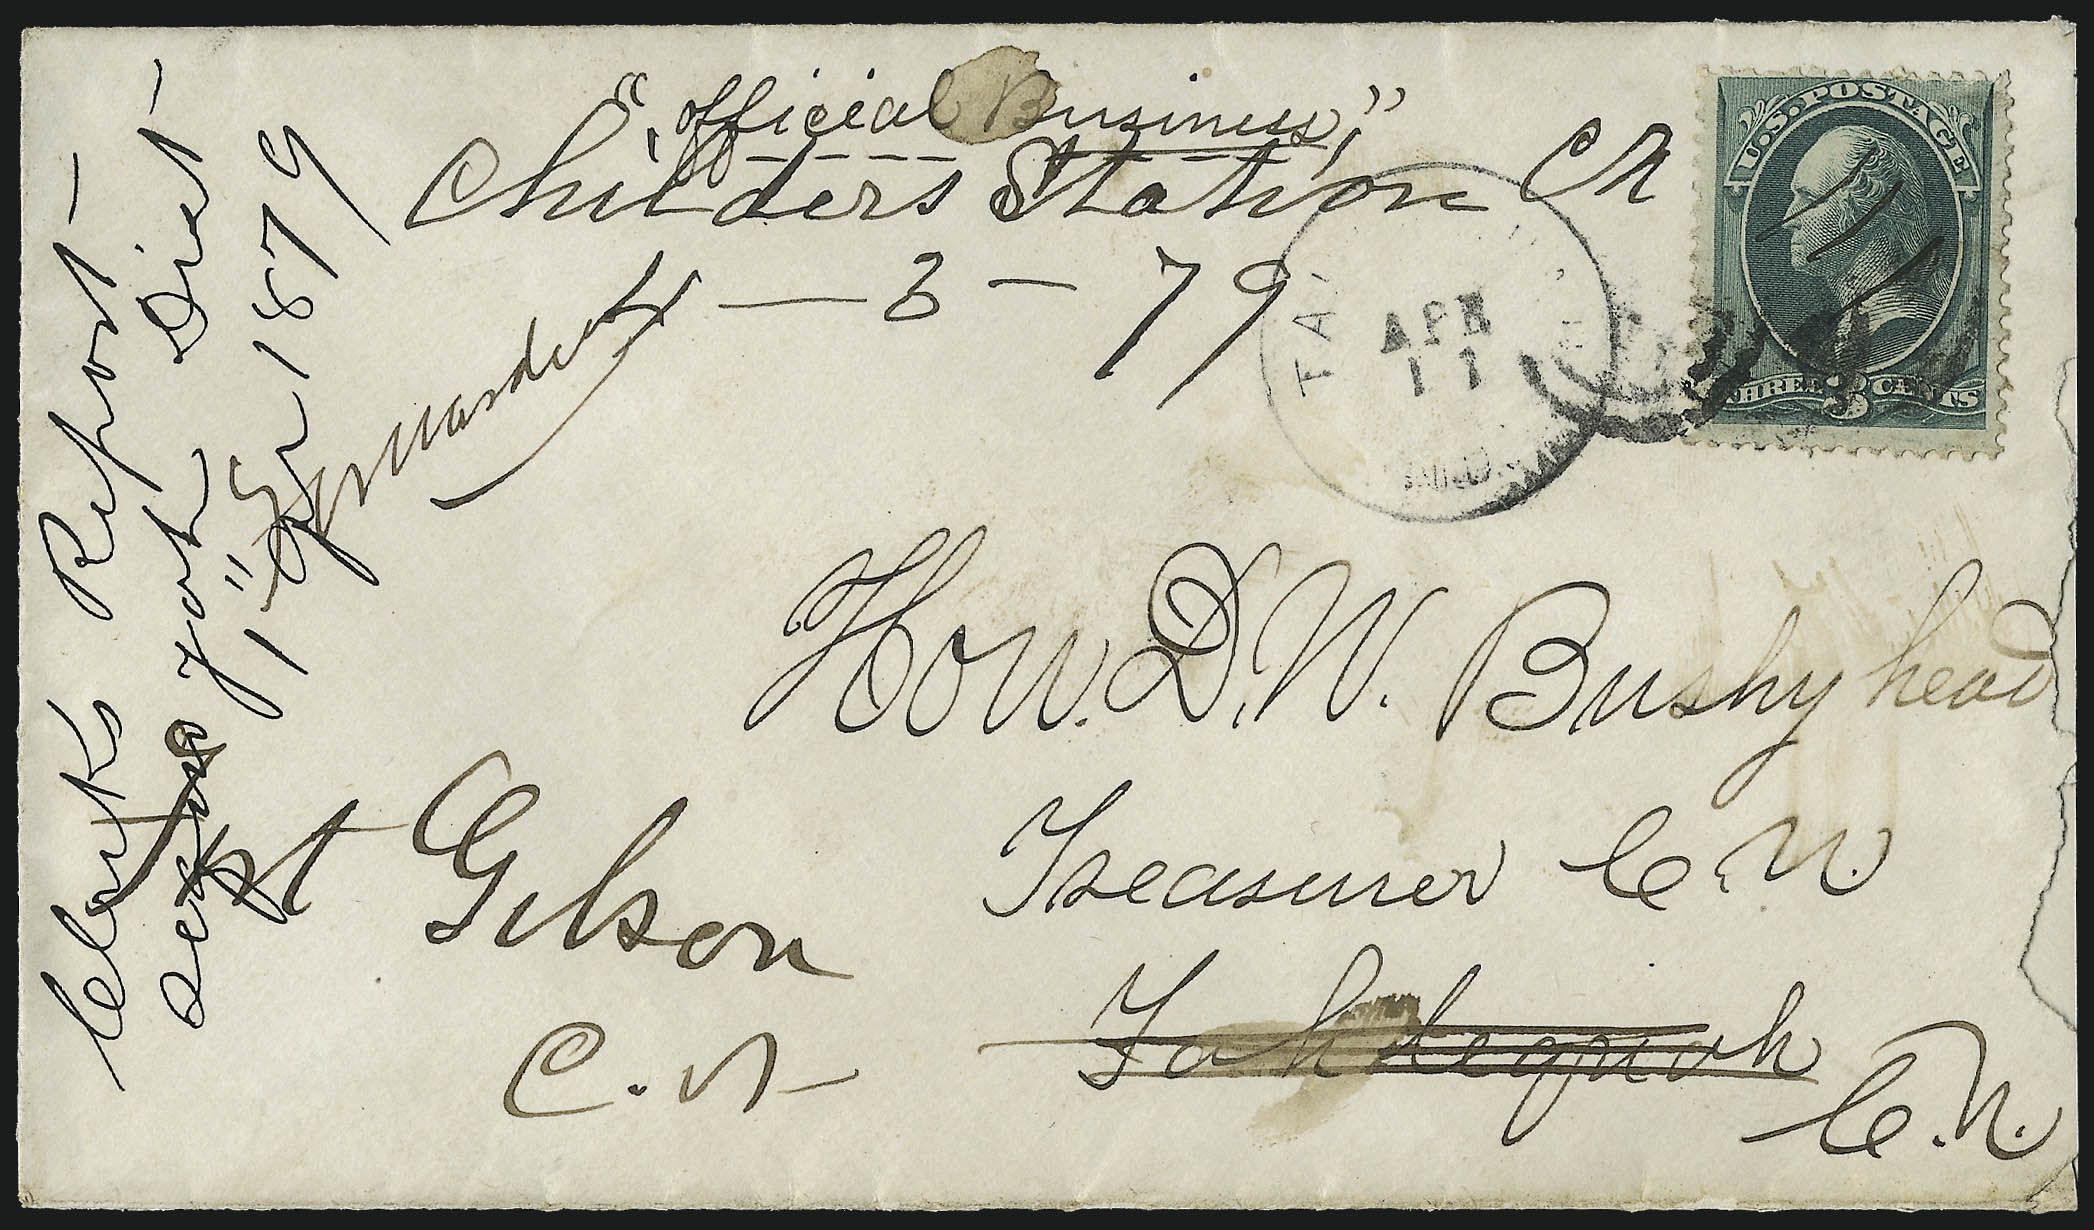 "Official Business,"
Childers Station CN
4 — 3 — 79
U.S. POSTAGE
THREE 3 CENTS
TA
APR
11
Forwarded
Hon. D. W. Bushyhead
Treasurer C. N.
Tahlequah
C. N.
Fort Gibson
C. N
Clerks Report
Sequoyah Dist
1" Qr 1879